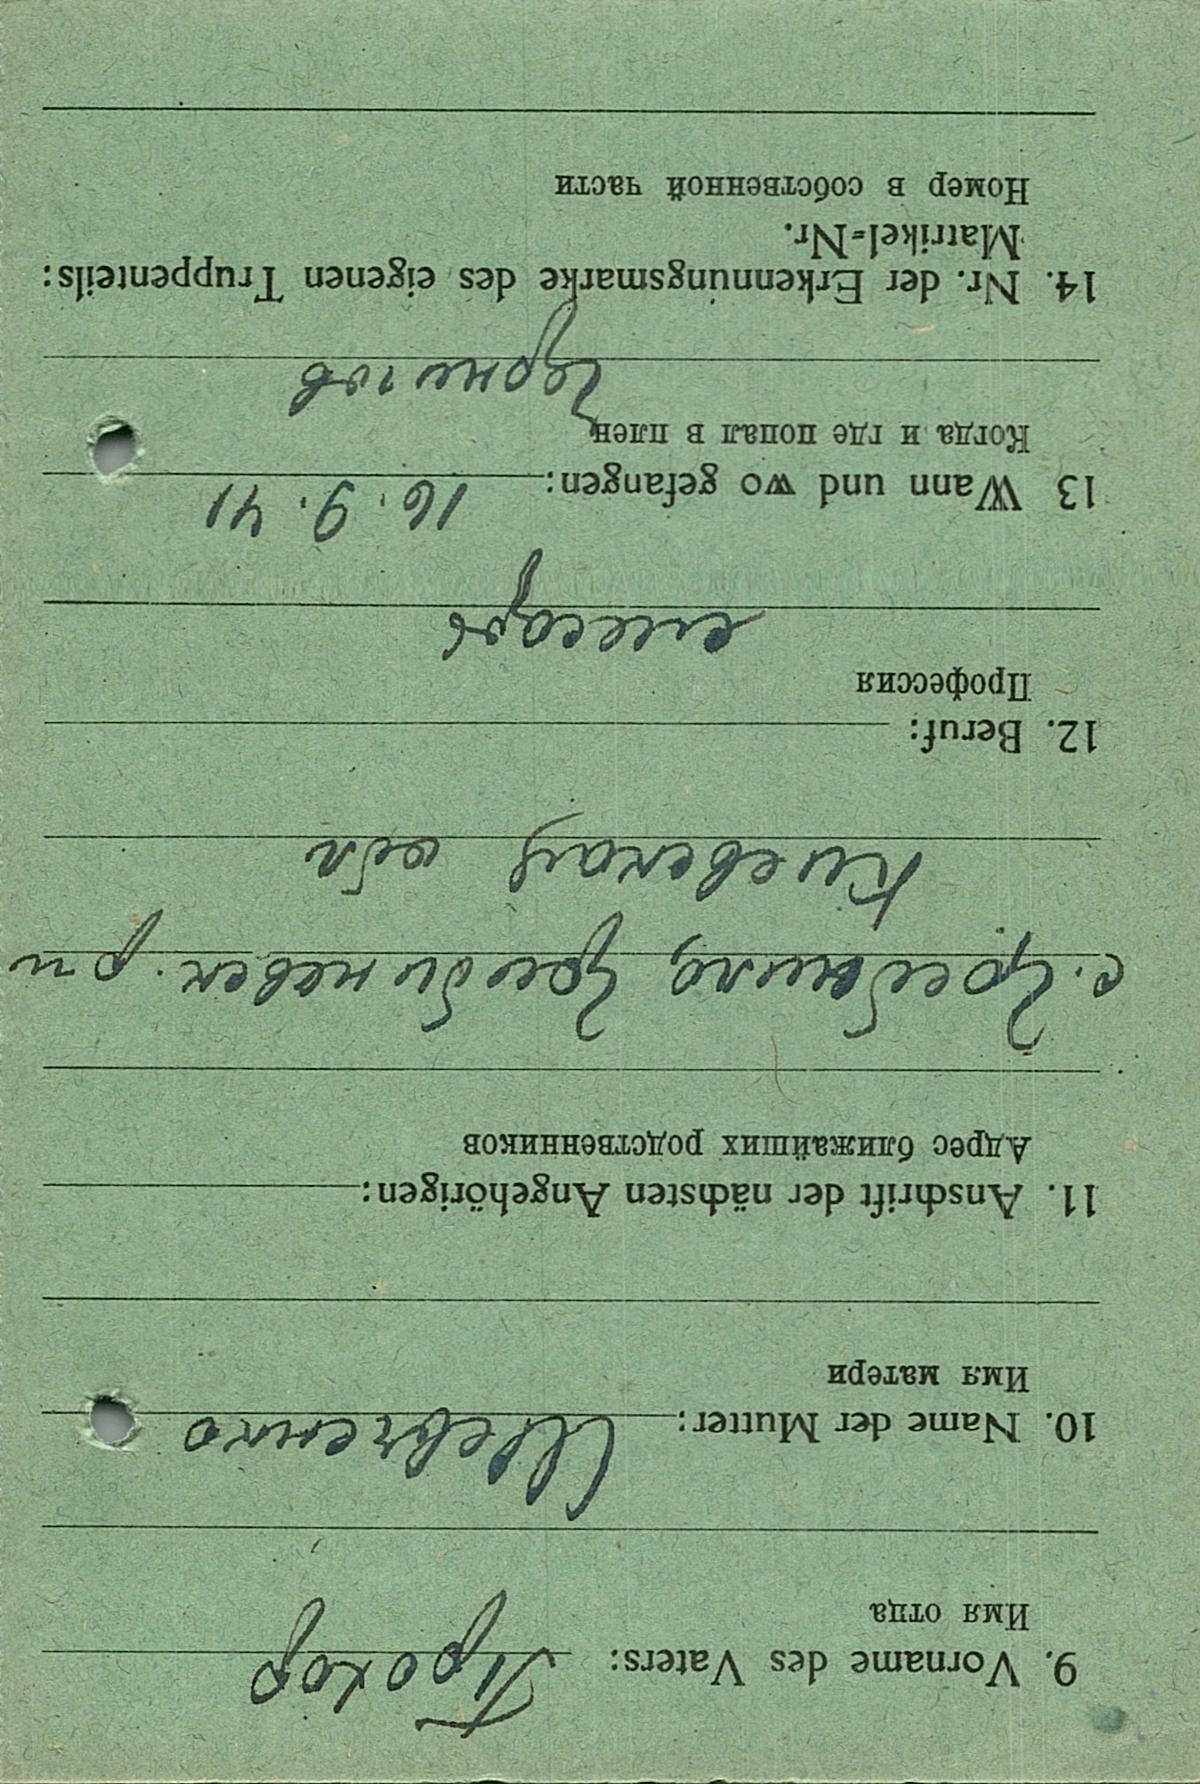 9. Vorname des Vaters: Прохор
Имя отца
10. Name der Mutter: Шевченко
Имя матери
11. Anschrift der nächsten Angehörigen:
Адрес ближайших родственников
с. Гребінка, Гребінковск. р-н
Киевская обл
12. Beruf:
Профессия
слесарь
13 Wann und wo gefangen: 16.9.41
Когда и где попал в плен
Чернигов
14. Nr. der Erkennungsmarke des eigenen Truppenteils:
Matrikel=Nr.
Номер в собственной части